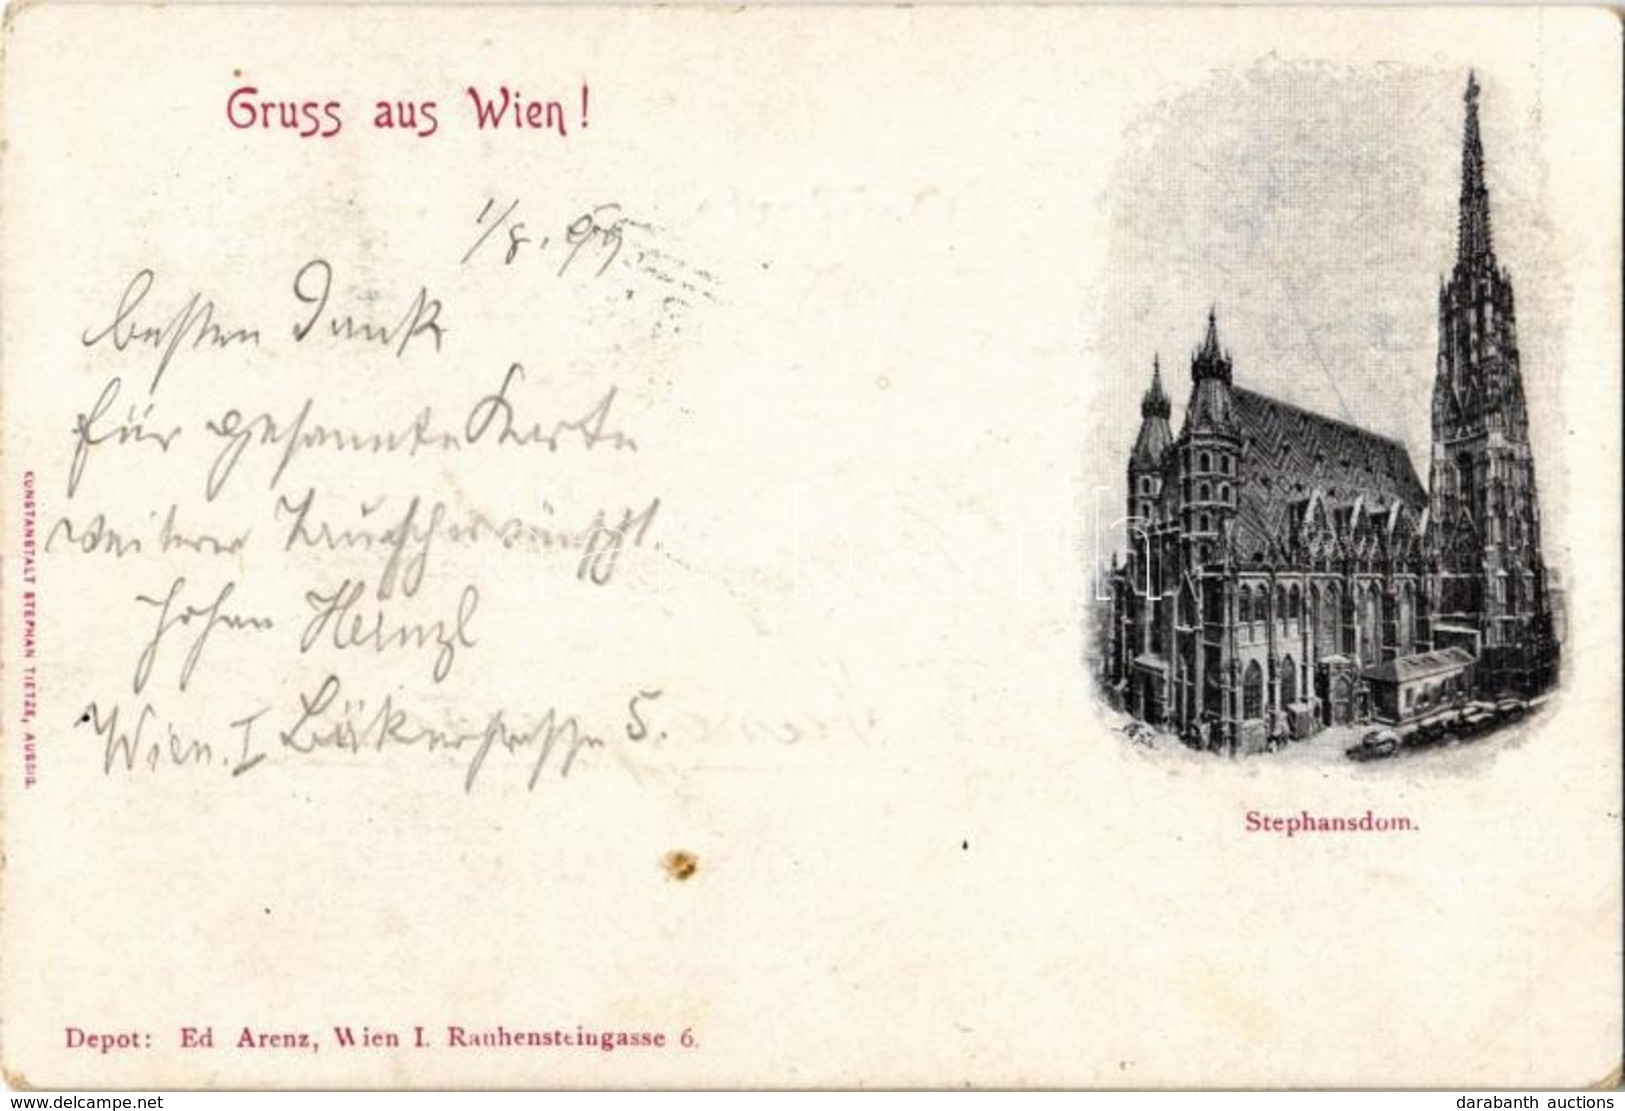 Gruss aus Wien!
1/8. 99
besten Dank
für gesannte Karte
weiterer Tausch erwünscht.
Johan Heinzl
Wien. I Bäkerstrasse 5.
KUNSTANSTALT STEPHAN TIETZE, AUSSIG.
Stephansdom.
Depot: Ed Arenz, Wien I. Rauhensteingasse 6.
www.delcampe.net
darabanth auctions